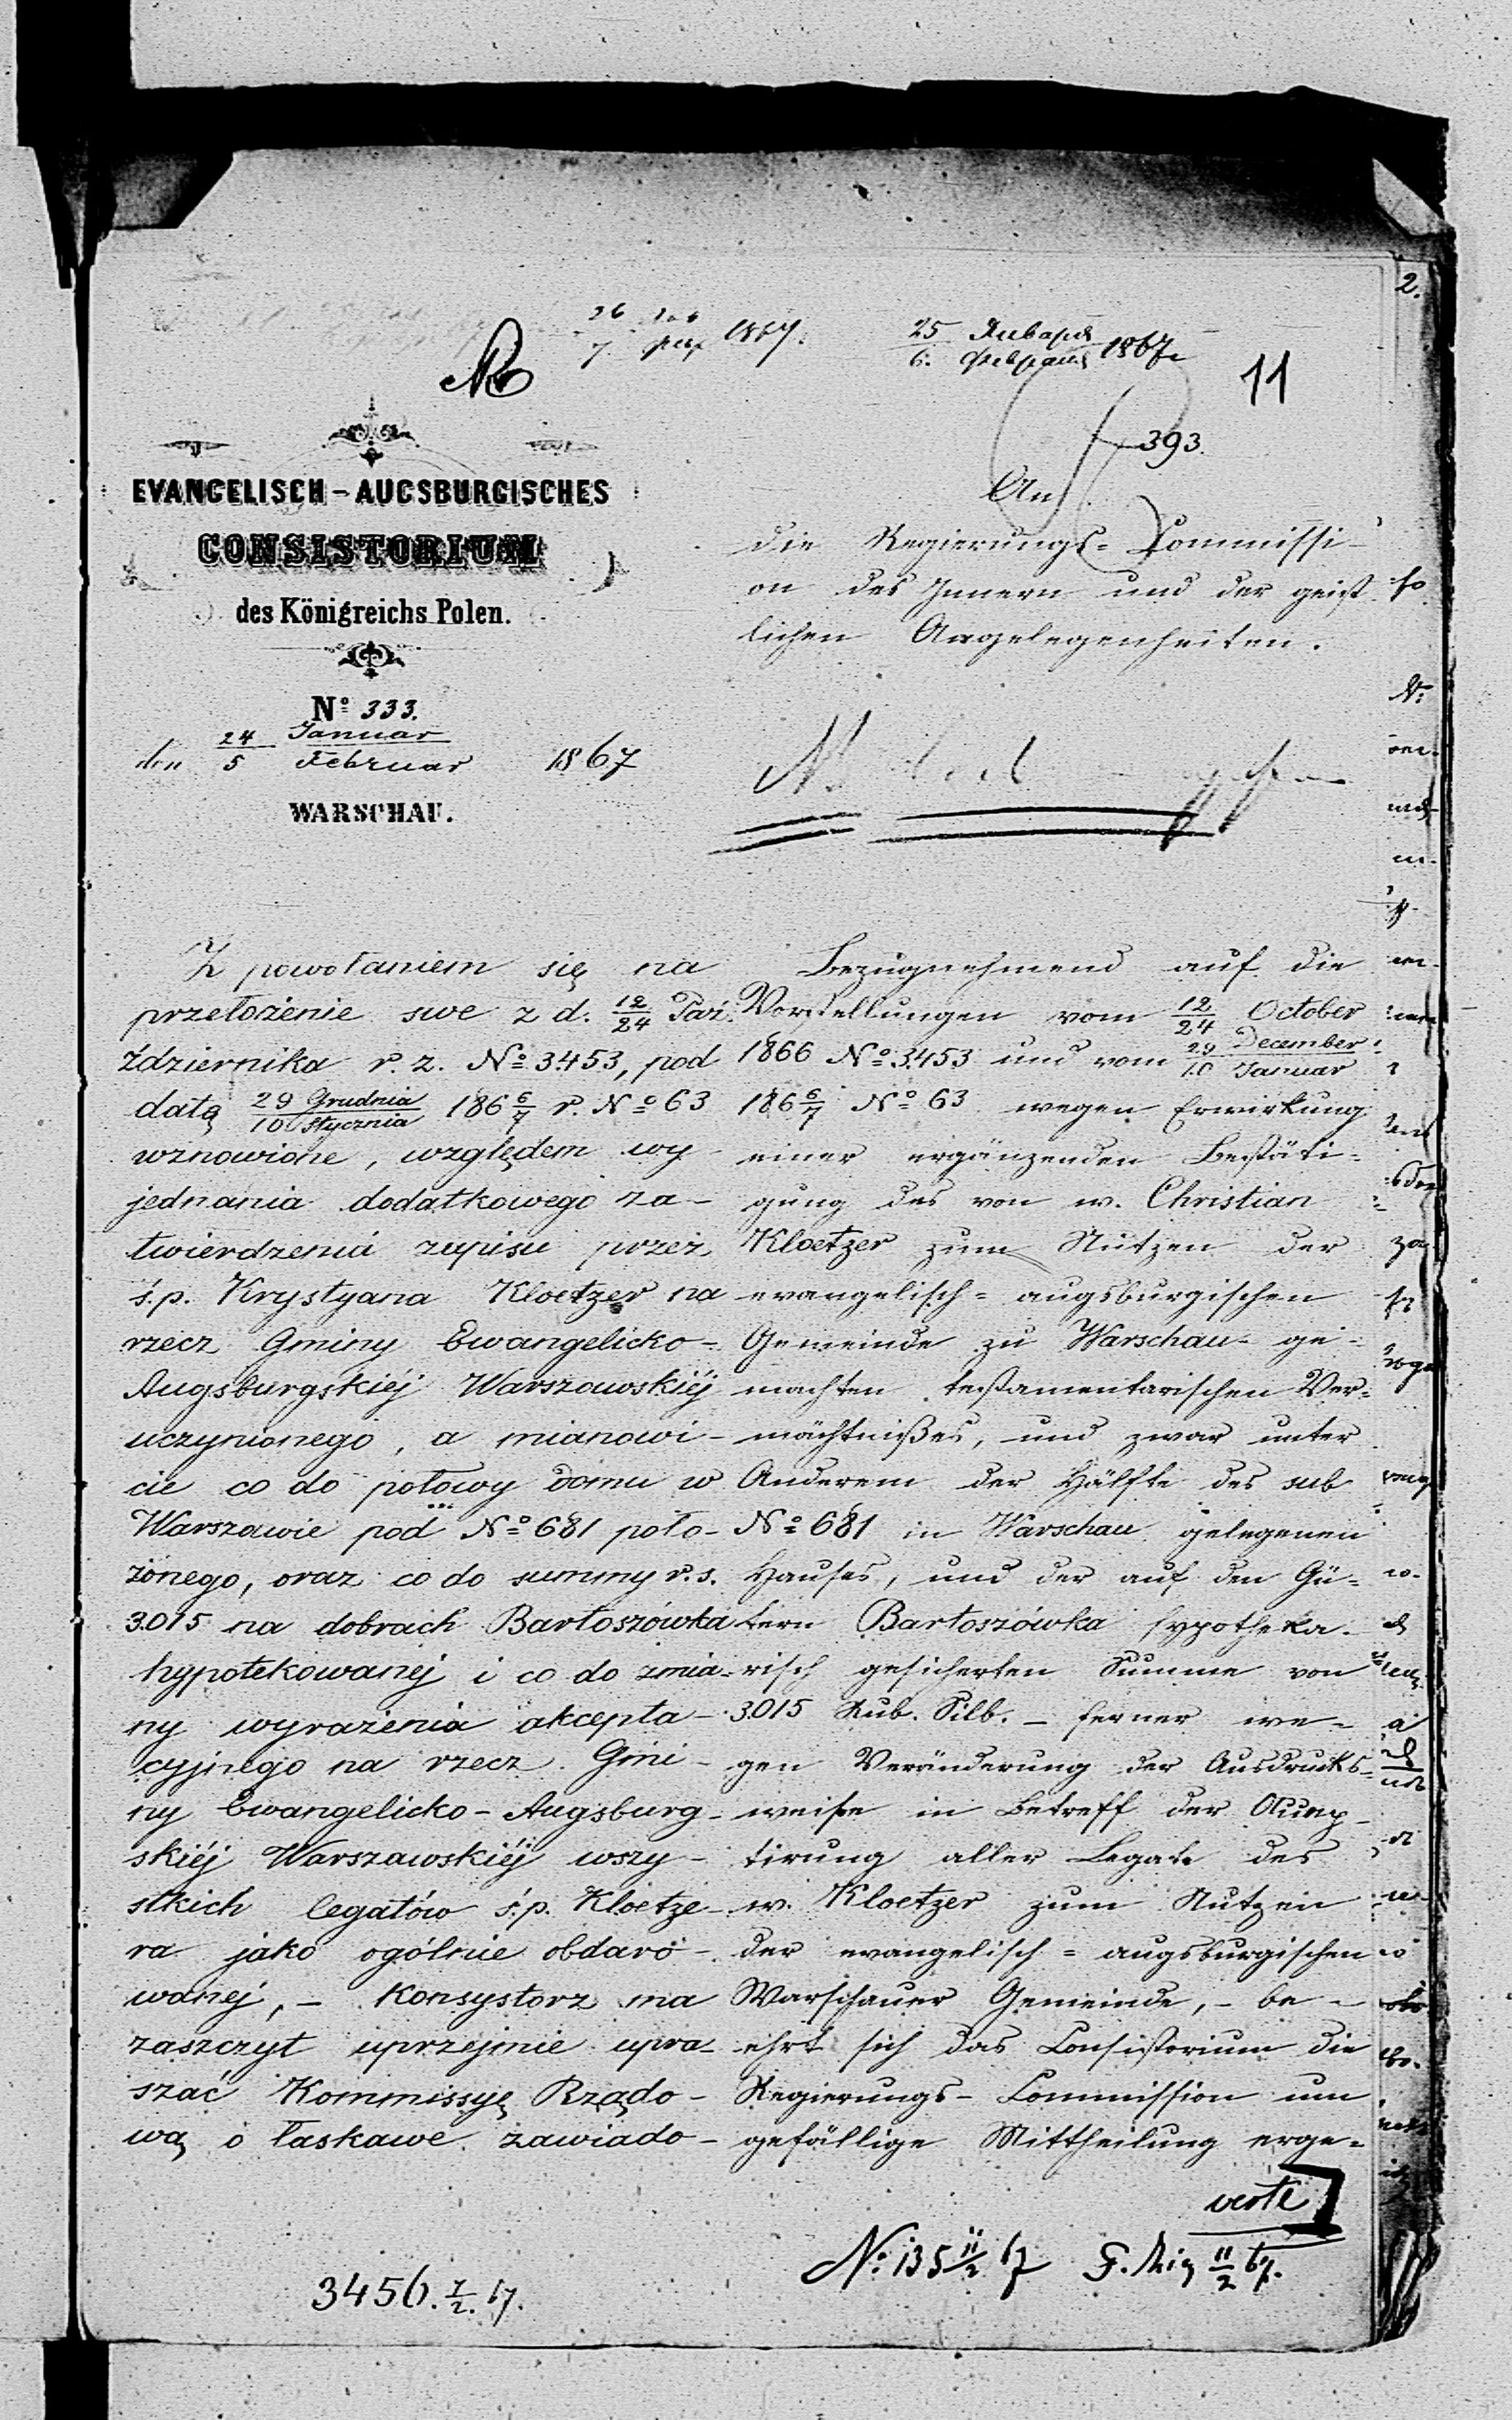 2.
1867.
25 Января
6. Февраля 1867
11
393.
EVANGELISCH-AUGSBURGISCHES
CONSISTORIUM
des Königreichs Polen.
Nº 333.
den 24 Januar
5 Februar 1867
WARSCHAU.
An
die Regierungs-Commissi-
on des Innern und der geist
lichen Angelegenheiten.
Z powołaniem się na
przełożenie swe z d. 12/24 Paź-
dziernika r. z. Nº 3453, pod
datą 29 Grudnia/10 Stycznia 186 6/7 r. Nº 63
wznowione, względem wy-
jednania dodatkowego za-
twierdzenia zapisu przez
ś.p. Krystyana Kloetzer na
rzecz Gminy Ewangelicko-
Augsburgskiéj Warszawskiéj
uczynionego, a mianowi-
cie co do połowy domu w
Warszawie pod Nº 681 poło-
żonego, oraz co do summy r.s.
3.015 na dobrach Bartoszówka
hypotekowanej i co do zmia-
ny wyrażenia akcepta-
cyjnego na rzecz Gmi-
ny Ewangelicko-Augsburg-
skiéj Warszawskiéj wszy-
stkich legatów ś.p. Kloetze-
ra jako ogólnie obdaro-
wanej, – Konsystorz ma
zaszczyt uprzejmie upra-
szać Kommissyę Rządo-
wą o łaskawe zawiado-
Bezugnehmend auf die
Vorstellungen vom 12/24 October
1866 Nº 3453 und vom 29 December/10 Januar
186 6/7 Nº 63 wegen Erwirkung
einer ergänzenden Bestäti-
gung des von w. Christian
Kloetzer zum Nutzen der
evangelisch-augsburgischen
Gemeinde zu Warschau ge-
machten testamentarischen Ver-
mächtnißes, und zwar unter
Anderem der Hälfte des sub
Nº 681 in Warschau gelegenen
Hauses, und der auf den Gü-
tern Bartoszówka hypotheka-
risch gesicherten Summe von
3.015 Rub. Silb. – ferner we-
gen Veränderung der Ausdrucks-
weise in Betreff der
tirung aller Legate des
w. Kloetzer zum Nutzen
der evangelisch-augsburgischen
Warschauer Gemeinde, – be-
ehrt sich das Consistorium die
Regierungs-Commission um
gefällige Mittheilung erge-
verte
Nº 135 11/2 67
11/2 67.
3456. 7/2. 67.